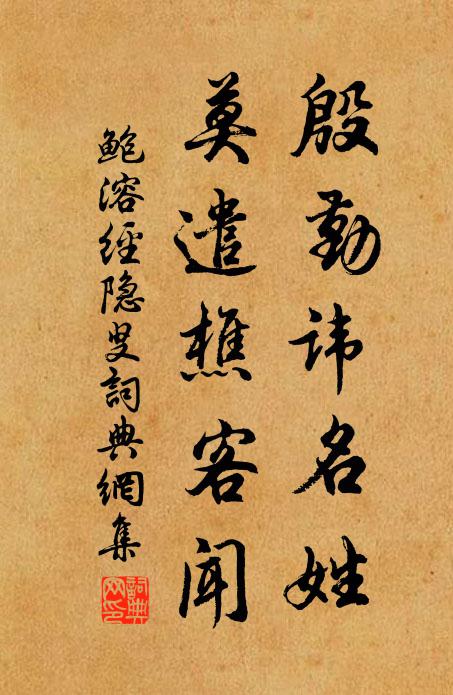 殷勤讳名姓
莫遣樵客闻
鲍溶经隐叟詞典網集
詞典网印